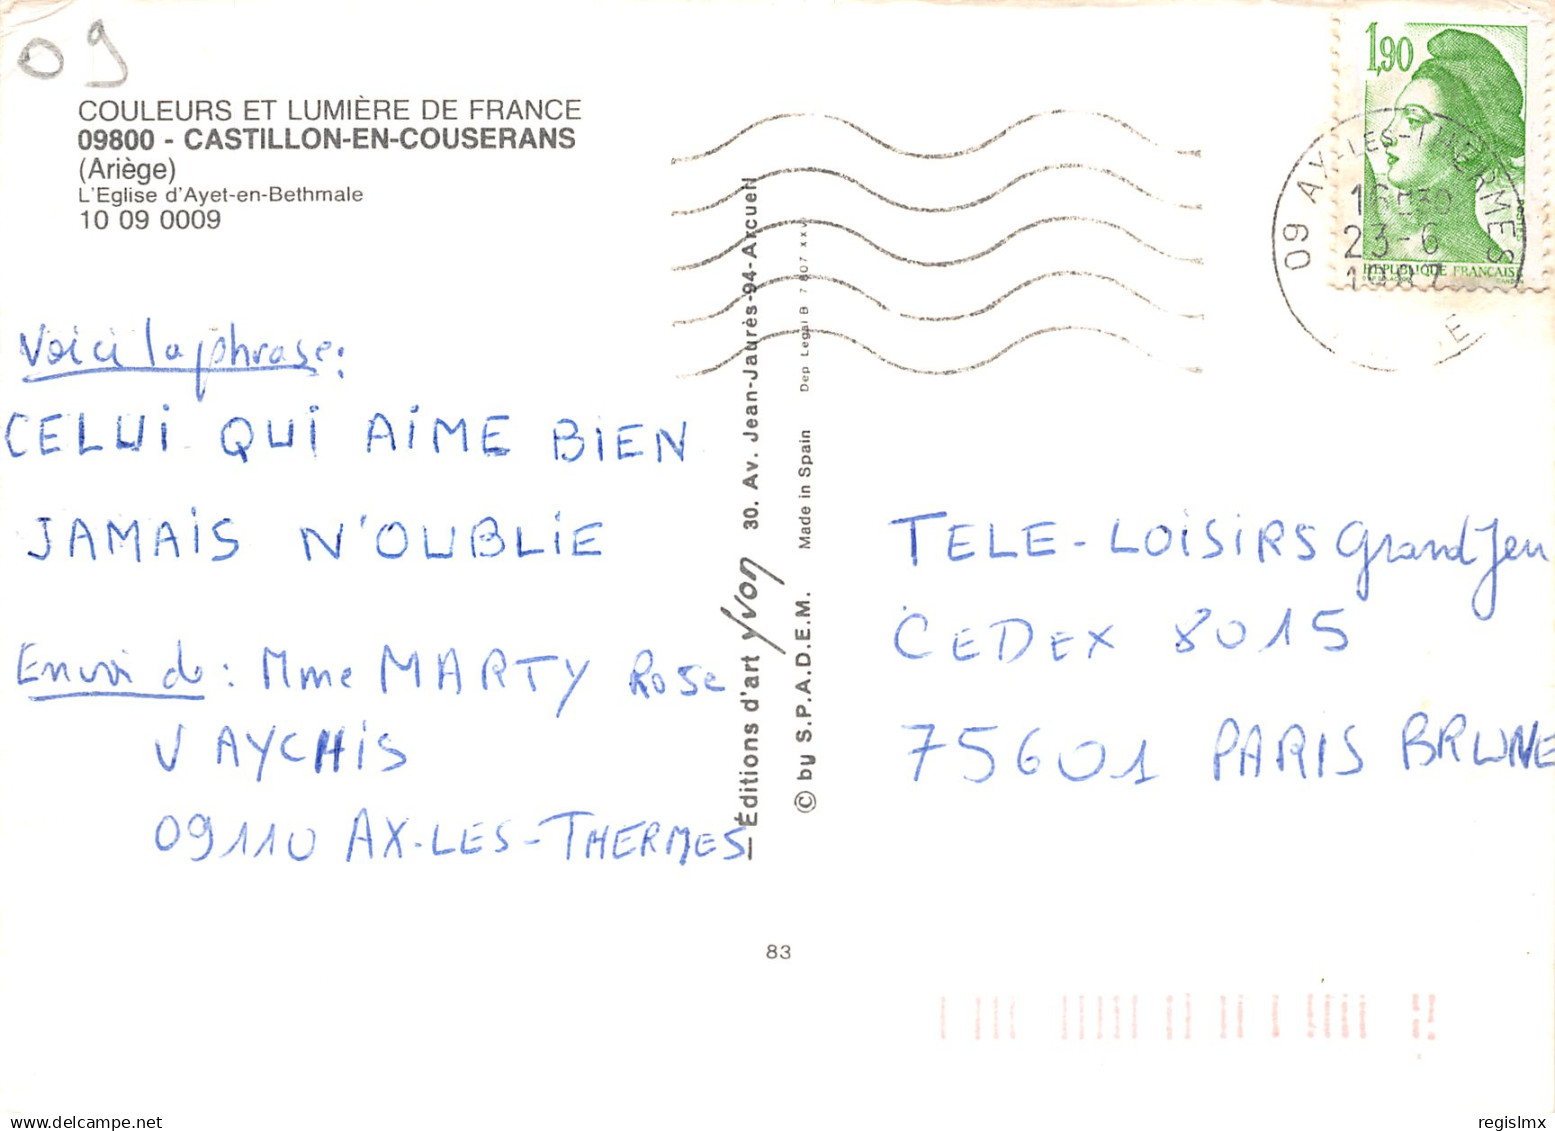 09
COULEURS ET LUMIÈRE DE FRANCE
09800 - CASTILLON-EN-COUSERANS
(Ariège)
L'Eglise d'Ayet-en-Bethmale
10 09 0009
Voici la phrase:
CELUI QUI AIME BIEN
JAMAIS N'OUBLIE
Envoi de: Mme MARTY Rose
VAYCHIS
09110 AX-LES-THERMES
Éditions d'art Yvon 30. Av. Jean-Jaurès-94-Arcueil
© by S.P.A.D.E.M. Made in Spain Dep Legal B
83
1,90
REPUBLIQUE FRANCAISE
09 AX-LES-THERMES
23-6
1987
TELE-LOISIRS Grand Jeu
CEDEX 8015
75601 PARIS BRUNE
regislmx